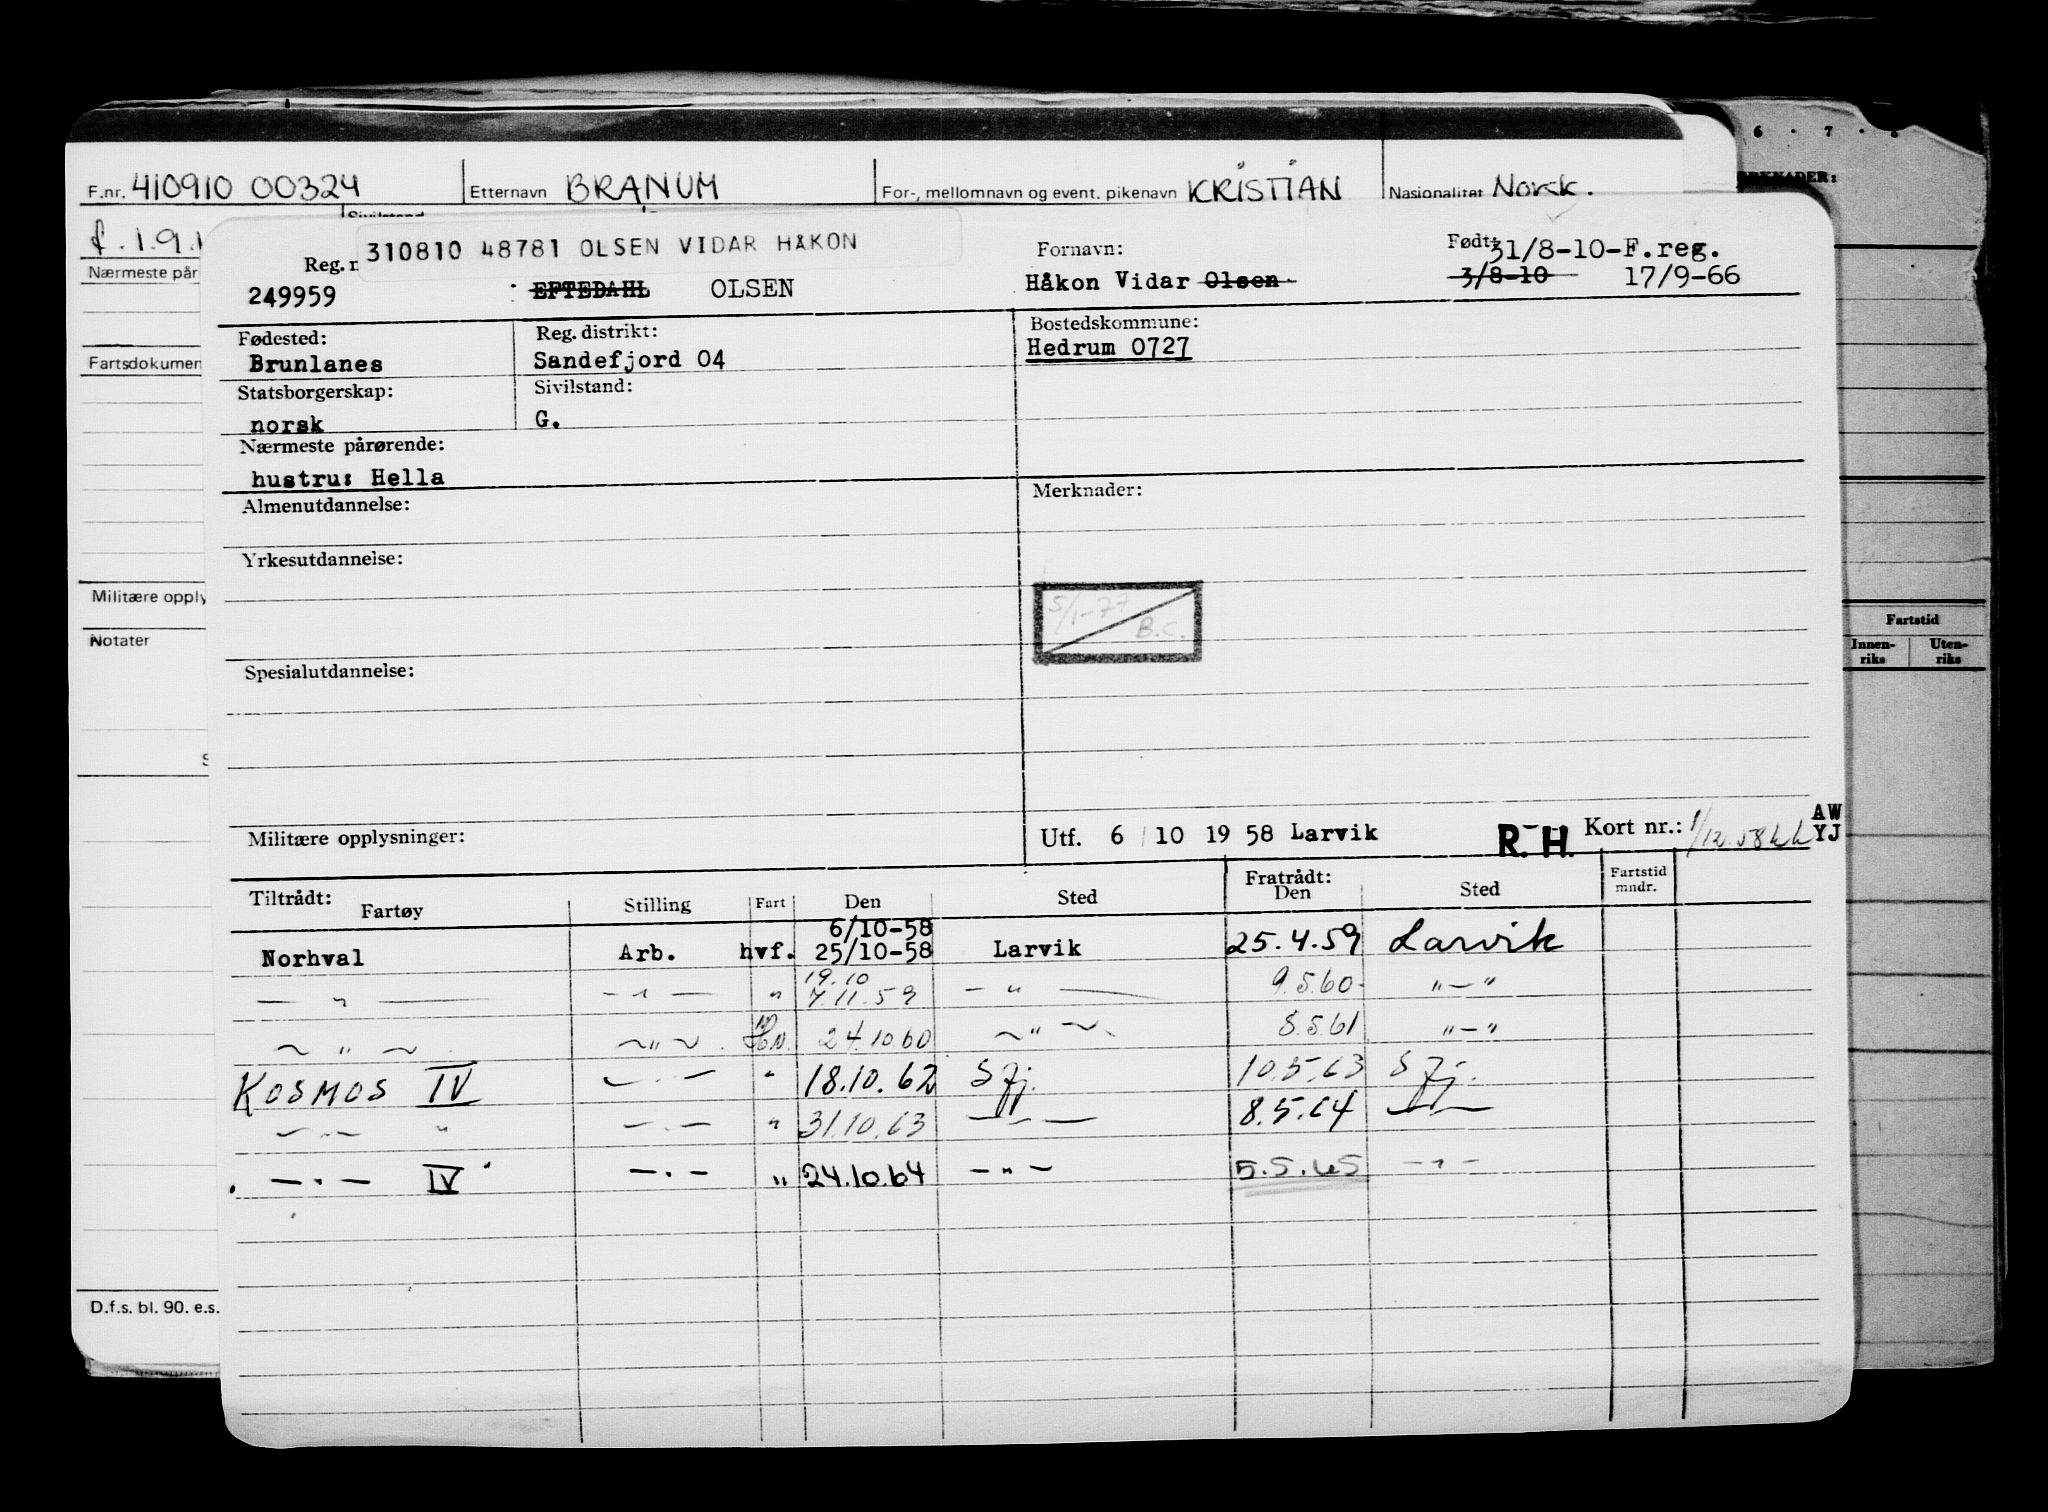 6 . 7 . 8
F.nr. 410910 00324 Etternavn BRANUM For-, mellomnavn og event. pikenavn KRISTIAN Nasjonalitet Norsk.
310810 48781 OLSEN VIDAR HÅKON Fornavn: Født: 31/8-10-F.reg.
249959 EFTEDAHL OLSEN Håkon Vidar Olsen 3/8-10 17/9-66
Nærmeste pår
Fødested: Reg. distrikt: Bostedskommune:
Brunlanes Sandefjord 04 Hedrum 0727
Fartsdokumen
Statsborgerskap: Sivilstand:
norsk G.
Nærmeste pårørende:
hustru: Hella
Almenutdannelse: Merknader:
Yrkesutdannelse:
5/1-77 B.C.
Militære opply
Notater
Fartstid
Innen- Uten-
riks riks
Spesialutdannelse:
Militære opplysninger: Utf. 6/10 1958 Larvik R.H. Kort nr.: AW
YJ
Tiltrådt: Fratrådt: Fartstid
Fartøy Stilling Fart Den Sted Den Sted mndr.
6/10-58
Norhval Arb. hvf. 25/10-58 Larvik 25.4.59 Larvik
19.10
— " — — " — " 7.11.59 — " — 9.5.60 " — "
~ " ~ ~ " ~ 24.10.60 ~ " ~ 8.5.61 " — "
KOSMOS IV — " — " 18.10.62 Sfj. 10.5.63 Sfj.
— " — " — " — " 31.10.63 — " — 8.5.64 — " —
— " — IV — " — " 24.10.64 — " — 5.5.65 — " —
D.f.s. bl. 90. e.s.